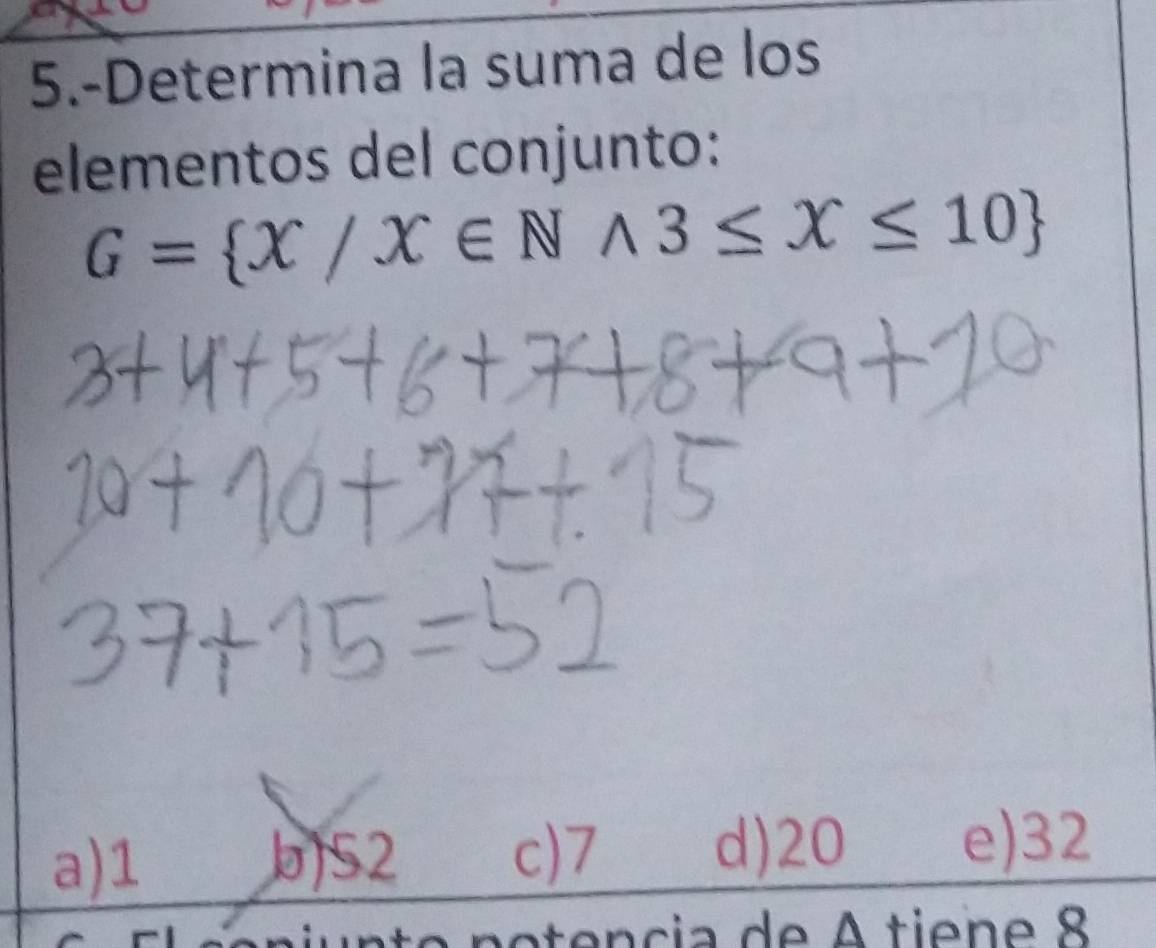 5.-Determina la suma de los
elementos del conjunto:
G = {X / X ∈ ℕ ∧ 3 ≤ X ≤ 10}
3+4+5+6+7+8+9+10
10+10+17+15
37+15=52
a)1 b)52 c)7 d)20 e)32
conjunto potencia de A tiene 8